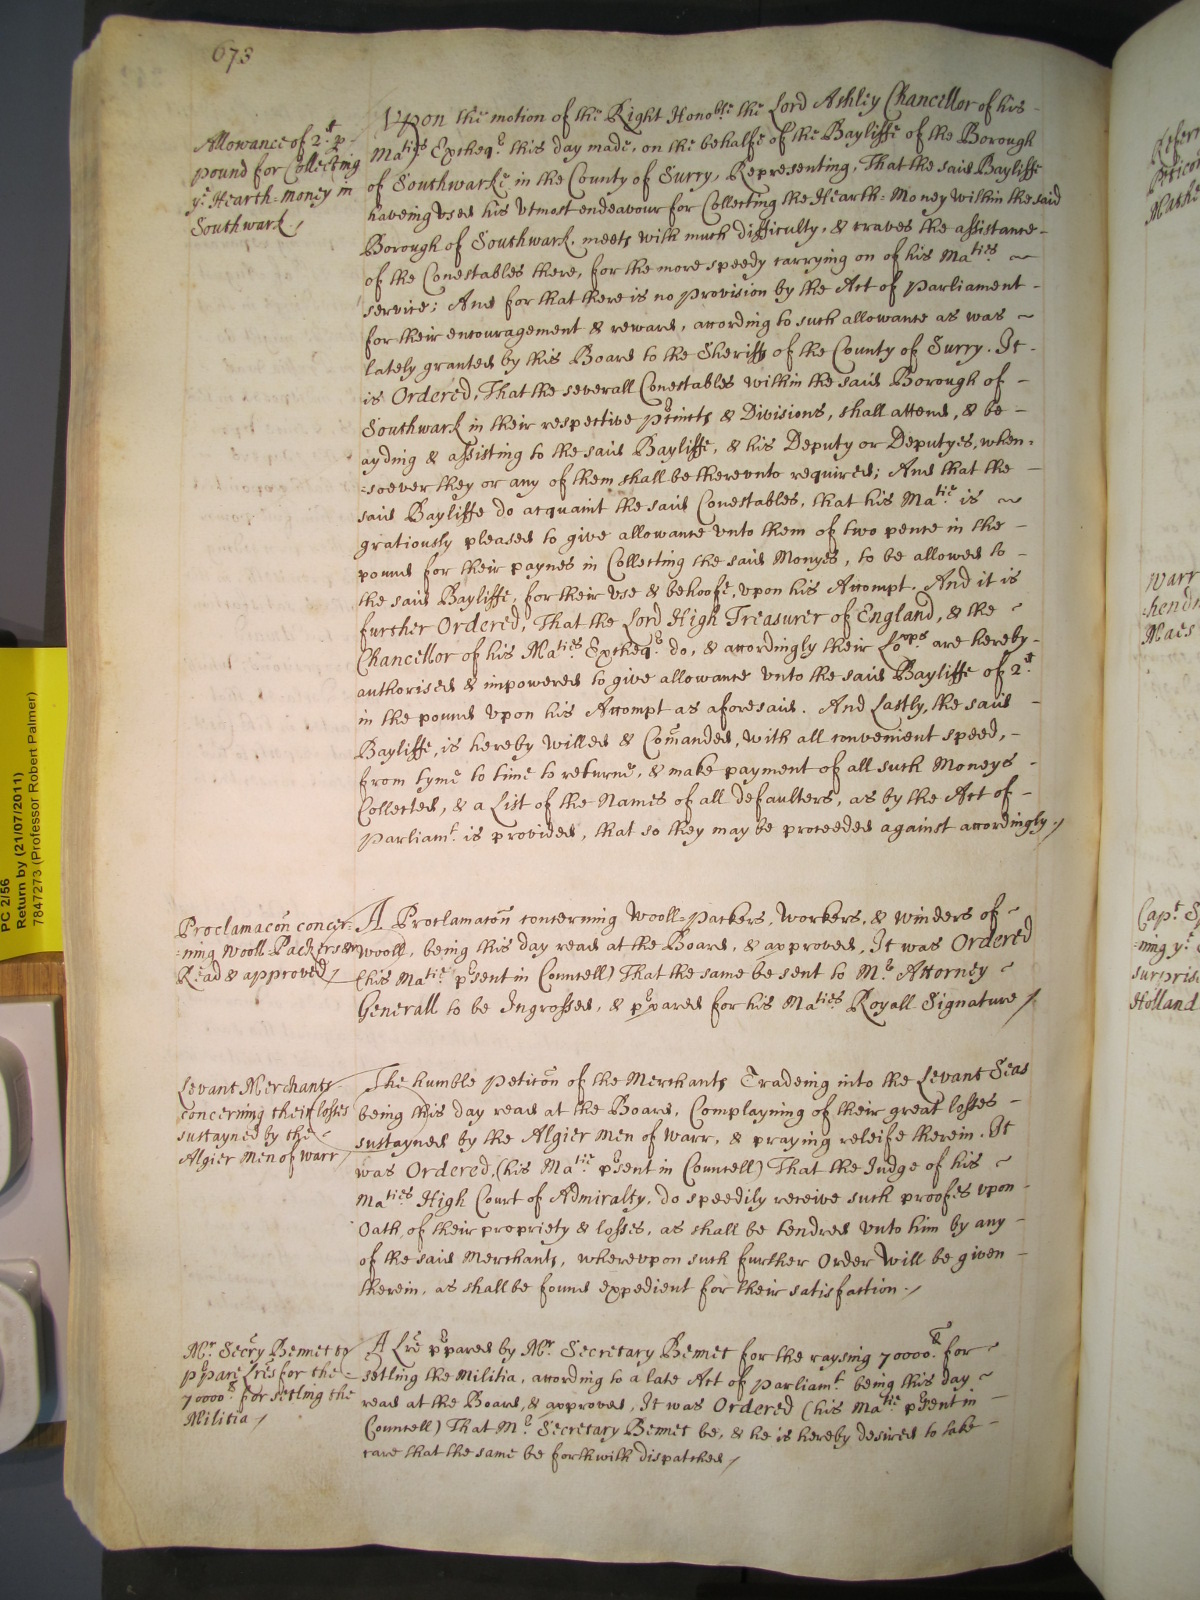 673
Allowance of 2d. p
pound for Collecting
ye Hearth=money in
Southwark
Vpon the motion of the Right Honoble the Lord Ashley Chancellor of his
Maties Excheqr. this day made, on the behalfe of the Bayliffe of the Borough
of Southwarke in the County of Surry, Representing, That the said Bayliffe
haveing vsed his vtmost endeavour for Collecting the Hearth=Money within the said
Borough of Southwark, meets with much difficulty, & craves the assistance
of the Conestables there, for the more speedy carrying on of his Maties
service; And for that there is no provision by the Act of Parliament
for their encouragement & reward, according to such allowance as was
lately granted by this Board to the Sheriffs of the County of Surry. It
is Ordered, That the severall Conestables within the said Borough of
Southwark in their respective prcincts & Divisions, shall attend, & be
ayding & assisting to the said Bayliffe, & his Deputy or Deputyes, when=
=soever they or any of them shall be therevnto required; And that the
said Bayliffe do acquaint the said Conestables, that his Matie is
gratiously pleased to give allowance vnto them of two pence in the
pound for their paynes in Collecting the said Monyes, to be allowed to
the said Bayliffe, for their vse & behoofe, vpon his Accompt. And it is
further Ordered, That the Lord High Treasurer of England, & the
Chancellor of his Maties Excheqr. do, & accordingly their Lopps are hereby
authorised & impowered to give allowance vnto the said Bayliffe of 2d.
in the pound vpon his Accompt as aforesaid. And Lastly, the said
Bayliffe, is hereby willed & Comanded, with all convenient speed,
from tyme to time to returne, & make payment of all such Moneys
Collected, & a List of the Names of all defaulters, as by the Act of
Parliamt. is provided, that so they may be proceeded against accordingly
Proclamacon concer=
=ning Wooll Packers &c
Read & approved
A Proclamacon concerning Wooll=Packers, Workers, & Winders of
wooll, being this day read at the Board, & approved, It was Ordered
(his Matie prsent in Councell) That the same be sent to Mr Attorney
Generall to be Ingrossed, & prpared for his Maties Royall Signature
Levant Merchants
concerning their losses
sustayned by the
Algier Men of warr
The humble Peticon of the Merchants Tradeing into the Levant Seas
being this day read at the Board, Complayning of their great losses
sustayned by the Algier Men of Warr, & praying releife therein. It
was Ordered, (his Matie prsent in Councell) That the Judge of his
Maties High Court of Admiralty, do speedily receive such proofes vpon
Oath, of their propriety & losses, as shall be tendred vnto him by any
of the said Merchants, wherevpon such further Order will be given
therein, as shall be found expedient for their satisfaction.
Mr. Secry Bennet to
prpare Lres for the
70000l for setling the
Militia
A Lre prpared by Mr. Secretary Bennet for the raysing 70000l. for
setling the Militia, according to a late Act of Parliamt. being this day
read at the Board, & approved, It was Ordered (his Matie prsent in
Councell) That Mr. Secretary Bennet be, & he is hereby desired to take
care that the same be forthwith dispatched
PC 2/56
Return by (21/07/2011)
7847273 (Professor Robert Palmer)
Warr
=hend
Maes
Capt S
=ning ye
surpris
Holland